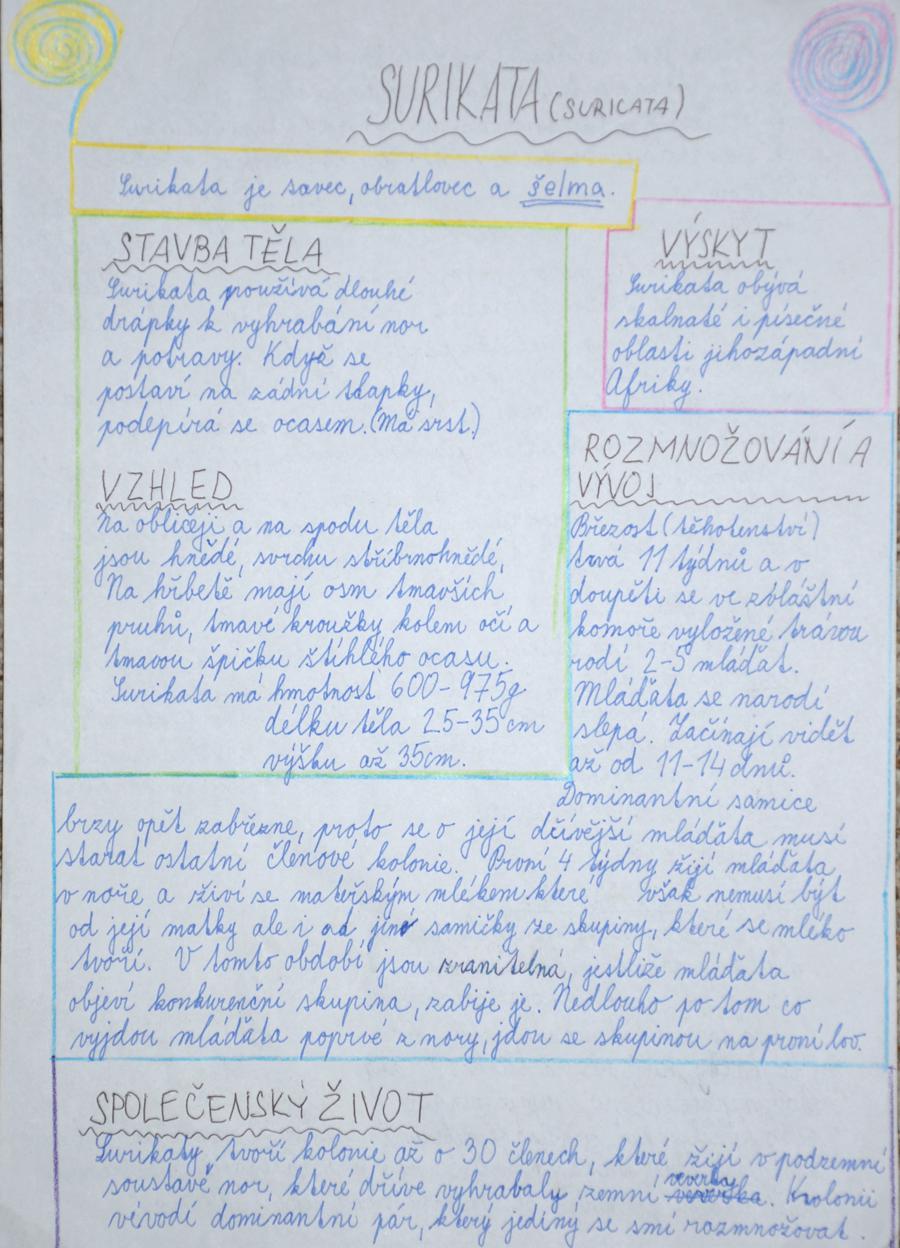 SURIKATA (SURICATA)
Surikata je savec, obratlovec a šelma.
STAVBA TĚLA
Surikata používá dlouhé
drápky k vyhrabání nor
a potravy. Když se
postaví na zadní tlapky,
podepírá se ocasem. (Má srst.)
VZHLED
Na obličeji a na spodu těla
jsou hnědé, svrchu stříbrnohnědé,
Na hřbetě mají osm tmavších
pruhů, tmavé kroužky kolem očí a
tmavou špičku štíhlého ocasu.
Surikata má hmotnost 600-975g
délku těla 25-35cm
výšku až 35cm.
VÝSKYT
Surikata obývá
skalnaté i písečné
oblasti jihozápadní
Afriky.
ROZMNOŽOVÁNÍ A
VÝVOJ
Březost (těhotenství)
trvá 11 týdnů a v
doupěti se ve zbláštní
komoře vyložené trávou
rodí 2-5 mláďat.
Mláďata se narodí
slepá. Začínají vidět
až od 11-14 dnů.
Dominantní samice
brzy opět zabřezne, proto se o její dřívější mláďata musí
starat ostatní členové kolonie. První 4 týdny žijí mláďata
v noře a živí se mateřským mlékem které však nemusí být
od její matky ale i od jiné samičky ze skupiny, které se mléko
tvoří. V tomto období jsou zranitelná, jestliže mláďata
objeví konkurenční skupina, zabije je. Nedlouho po tom co
vyjdou mláďata poprvé z nory, jdou se skupinou na první lov.
SPOLEČENSKÝ ŽIVOT
Surikaty tvoří kolonie až o 30 členech, které žijí v podzemní
soustavě nor, které dříve vyhrabaly zemní veverky. Kolonii
vévodí dominantní pár, který jediný se smí rozmnožovat.